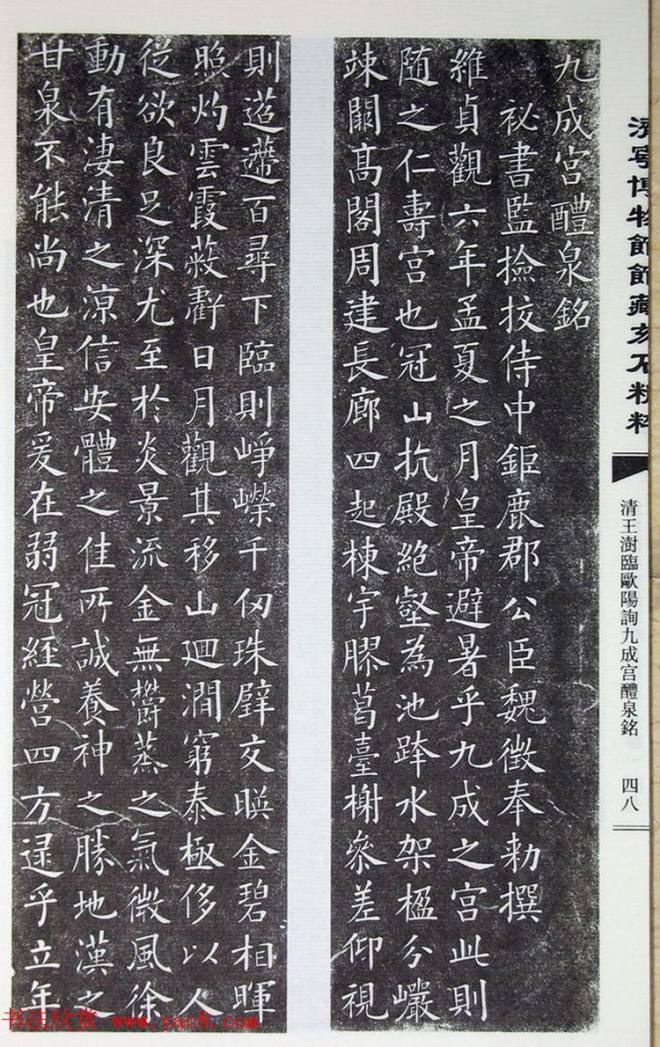 濟寧博物館館藏玄石粹粹
清王澍臨歐陽詢九成宮醴泉銘
四八
九成宮醴泉銘
祕書監撿挍侍中鉅鹿郡公臣魏徵奉勅撰
維貞觀六年孟夏之月皇帝避暑乎九成之宮此則
随之仁壽宮也冠山抗殿絶壑為池跨水架楹分巗
竦闕髙閣周建長廊四起棟宇膠葛臺榭參差仰視
則迢遰百尋下臨則崢嶸千仞珠壁交暎金碧相暉
照灼雲霞蔽虧日月觀其移山迴澗窮泰極侈以人
從欲良足深尤至於炎景流金無欝蒸之氣微風徐
動有淒清之涼信安體之佳所誠養神之勝地漢之
甘泉不能尚也皇帝爰在弱冠經營四方逮乎立年
书法欣赏 www.yac8.com